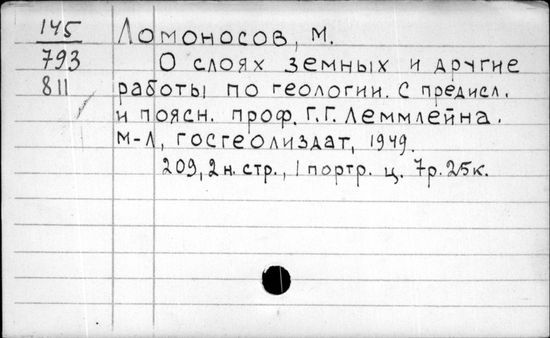 145 Ломоносов, М.
793 О слоях земных и другие
811 работы по геологии. С предисл.
и поясн. проф. Г.Г. Леммлейна.
М-Л, госгеолиздат, 1949.
209, 2 н. стр., 1 портр. ц. 7р.25к.